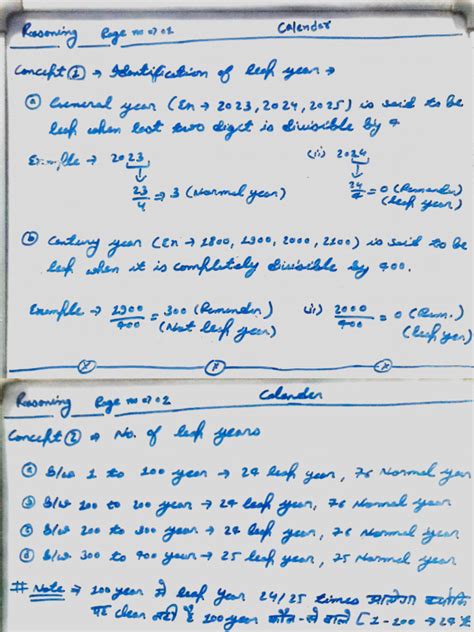 Reasoning Page no 01 02 Calendar
Concept ① → Identification of leap year →
ⓐ General year (En → 2023, 2024, 2025) is said to be
leap when last two digit is divisible by 4
Example → 2023 (ii) 2024
23/4 ⇒ 3 (Normal year) 24/4 = 0 (Remainder)
(leap year)
ⓑ Century year (En → 1800, 1900, 2000, 2100) is said to be
leap when it is completely divisible by 400.
Example → 1900/400 = 300 (Remainder) (ii) 2000/400 = 0 (Rem.)
(Not leap year) (leap year)
Reasoning Page no 02 02 Calender
Concept ② → No. of leap years
ⓐ b/w 1 to 100 year → 24 leap year, 76 Normal year
ⓑ b/w 100 to 200 year → 24 leap year, 76 Normal year
ⓒ b/w 200 to 300 year → 24 leap year, 76 Normal year
ⓓ b/w 300 to 400 year → 25 leap year, 75 Normal year
# Note → 100 year में leap year 24/25 times आयेगा क्योंकि
यह clear नहीं है 100 year कौन-से वाले [1-100 → 24